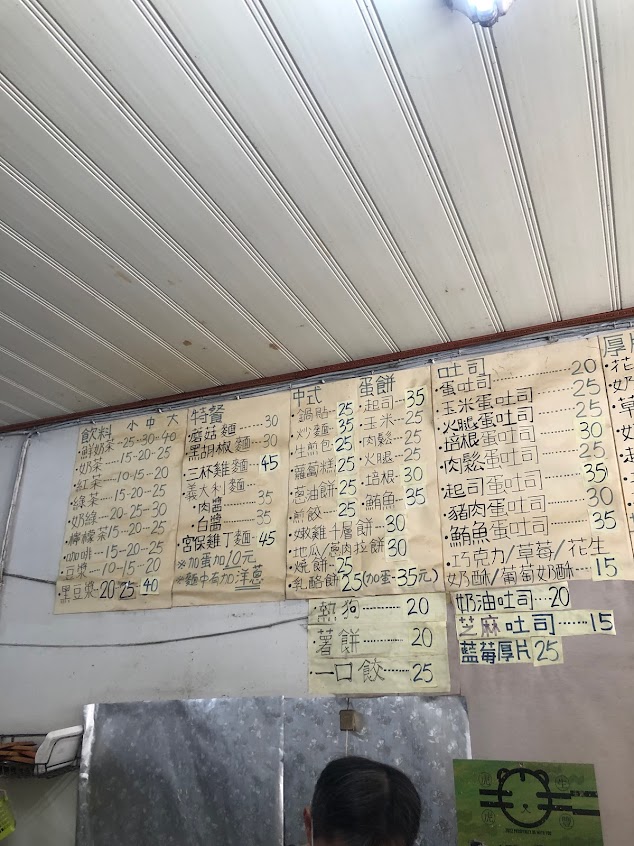 飲料 小 中 大
·鮮奶茶-25-30-40
·奶茶---15-20-25
·紅茶---10-15-20
·綠茶---15-20-25
·奶綠---20-25-30
·檸檬茶15--20-25
·咖啡--15-20-25
·豆漿--10-15-20
黑豆漿-20-25-40
特餐
·蘑菇麵----30
黑胡椒麵--30
·三杯雞麵-45
義大利麵
·肉醬------35
·白醬------35
宮保雞丁麵-45
※加蛋加10元
※麵中有加洋蔥
中式
·鍋貼--25
·炒麵--35
·生煎包-25
·蘿蔔糕25
·蔥油餅25
·煎餃---25
·嫩雞千層餅---30
·地瓜/蔥肉拉餅30
·燒餅---25
·乳酪餅25(加蛋-35元)
蛋餅
·起司--35
·玉米--25
·肉鬆--25
·火腿--25
·培根--30
·鮪魚--35
·熱狗--------20
薯餅--------20
一口餃------25
吐司--------------20
·蛋吐司-----------25
·玉米蛋吐司-------25
·火腿蛋吐司-------25
·培根蛋吐司-------30
·肉鬆蛋吐司-------25
·起司蛋吐司-------35
·豬肉蛋吐司-------30
·鮪魚蛋吐司-------35
·巧克力/草莓/花生
奶酥/葡萄奶酥----15
奶油吐司--20
芝麻吐司------15
藍莓厚片25
厚片
·花
·奶
·草